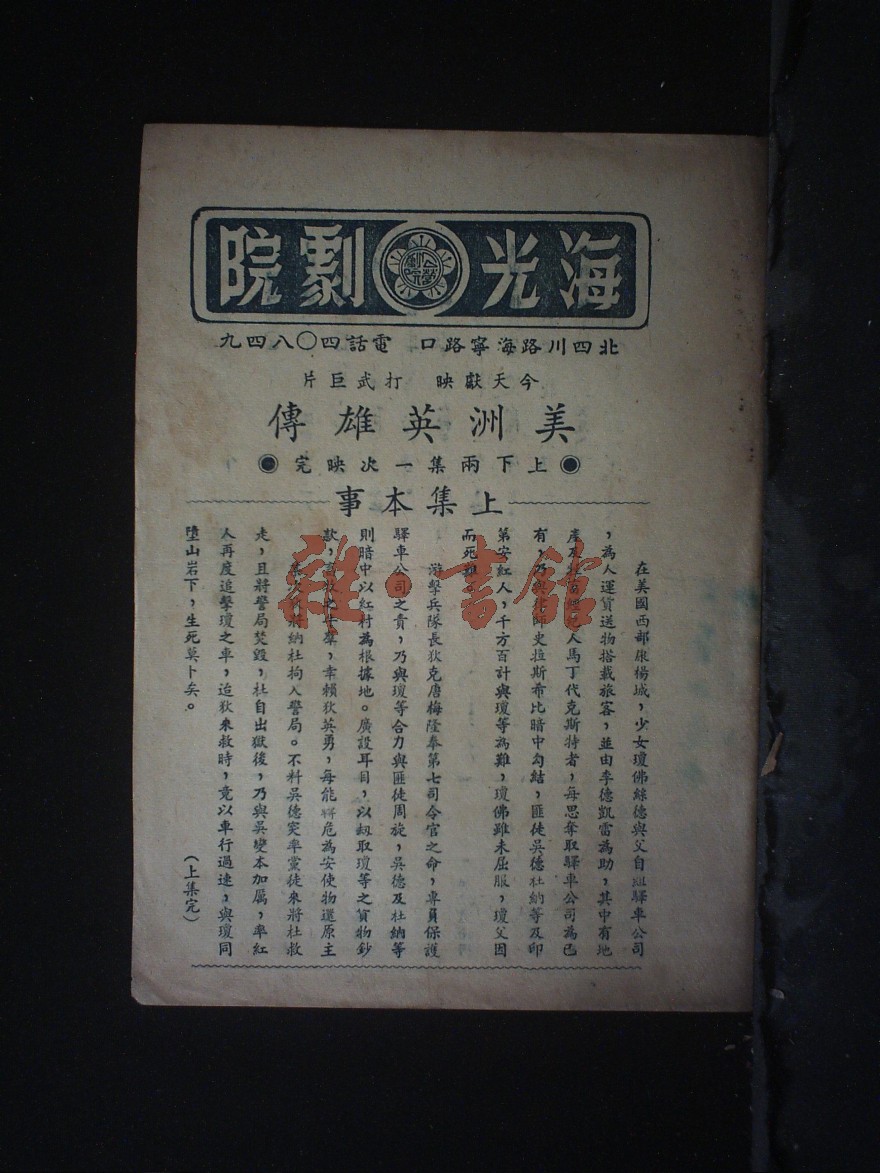 海光劇院
公營劇院
北四川路海寧路口 電話四〇八四九
今天獻映 打武巨片
美洲英雄傳
●上下兩集一次映完●
上集本事
在美國西部康楊城,少女瓊佛絲德與父自組驛車公司
,為人運貨送物搭載旅客,並由李德凱雷為助,其中有地
產及人馬丁代克斯特者,每思奪取驛車公司為己
有,乃與律師史拉斯希比暗中勾結,匪徒吳德杜納等及印
第安紅人,千方百計與瓊等為難,瓊佛雖未屈服,瓊父因
而死難。
游擊兵隊長狄克唐梅隆奉第七司令官之命,專員保護
驛車公司之責,乃與瓊等合力與匪徒周旋,吳德及杜納等
則暗中以紅村為根據地。廣設耳目,以刼取瓊等之貨物鈔
款,幸賴狄英勇,每能將危為安使物還原主
某次將納杜拘入警局。不料吳德突率黨徒來將杜救
走,且將警局焚毀,杜自出獄後,乃與吳變本加厲,率紅
人再度追擊瓊之車,迨狄來救時,竟以車行過速,與瓊同
墮山岩下,生死莫卜矣。
(上集完)
雜·書館